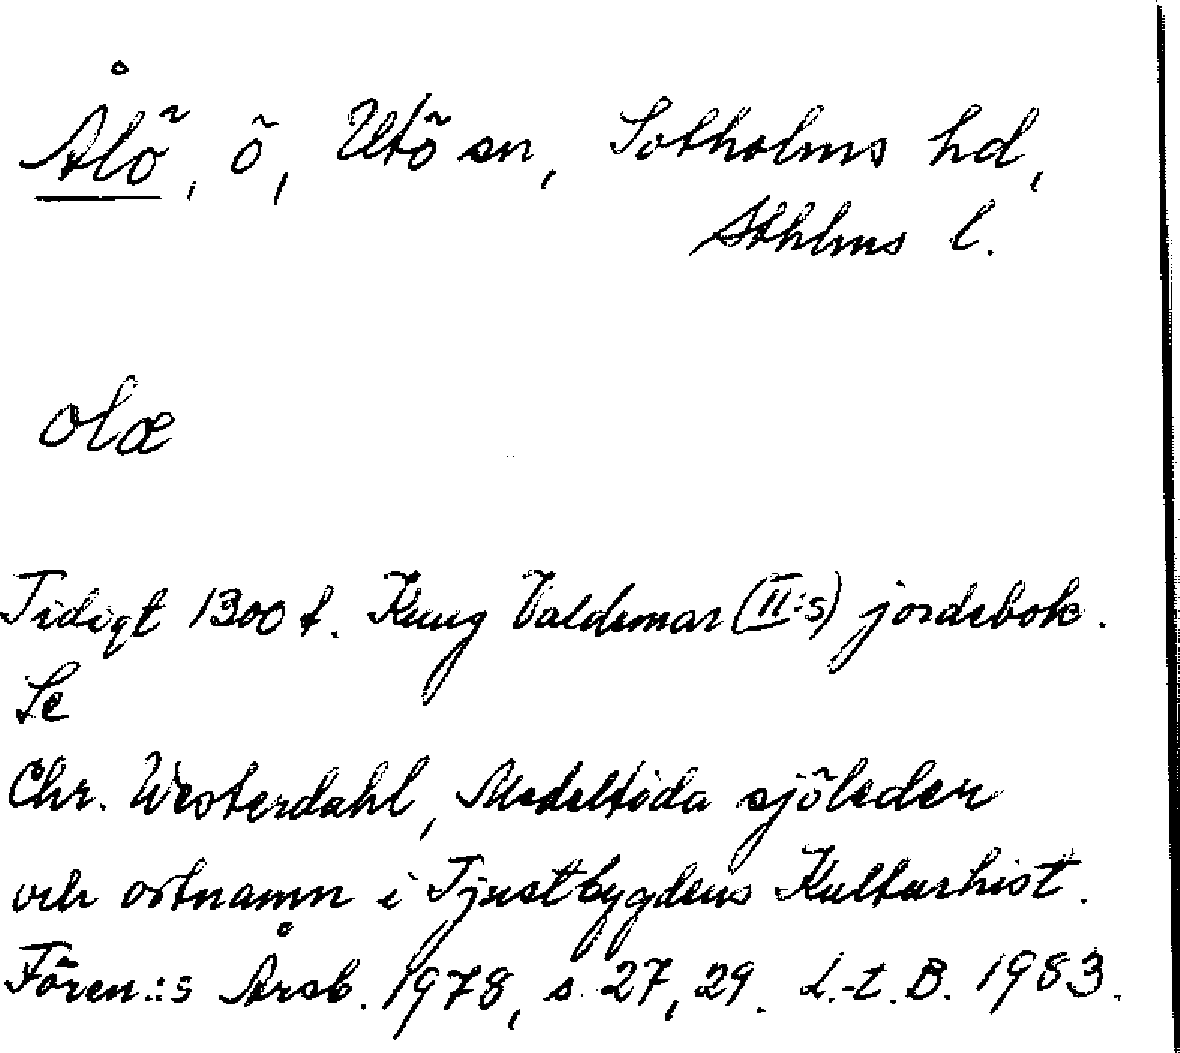 Ålö, ö, Utö sn, Sotholms hd,
Sthlms l.
olæ
Tidigt 1300 t. Kung Valdemar (II:s) jordebok.
Se
Chr. Westerdahl, Medeltida sjöleder
och ortnamn i Tjustbygdens Kulturhist.
Fören.:s Årsb. 1978, s. 27, 29. L.-t. B. 1983.